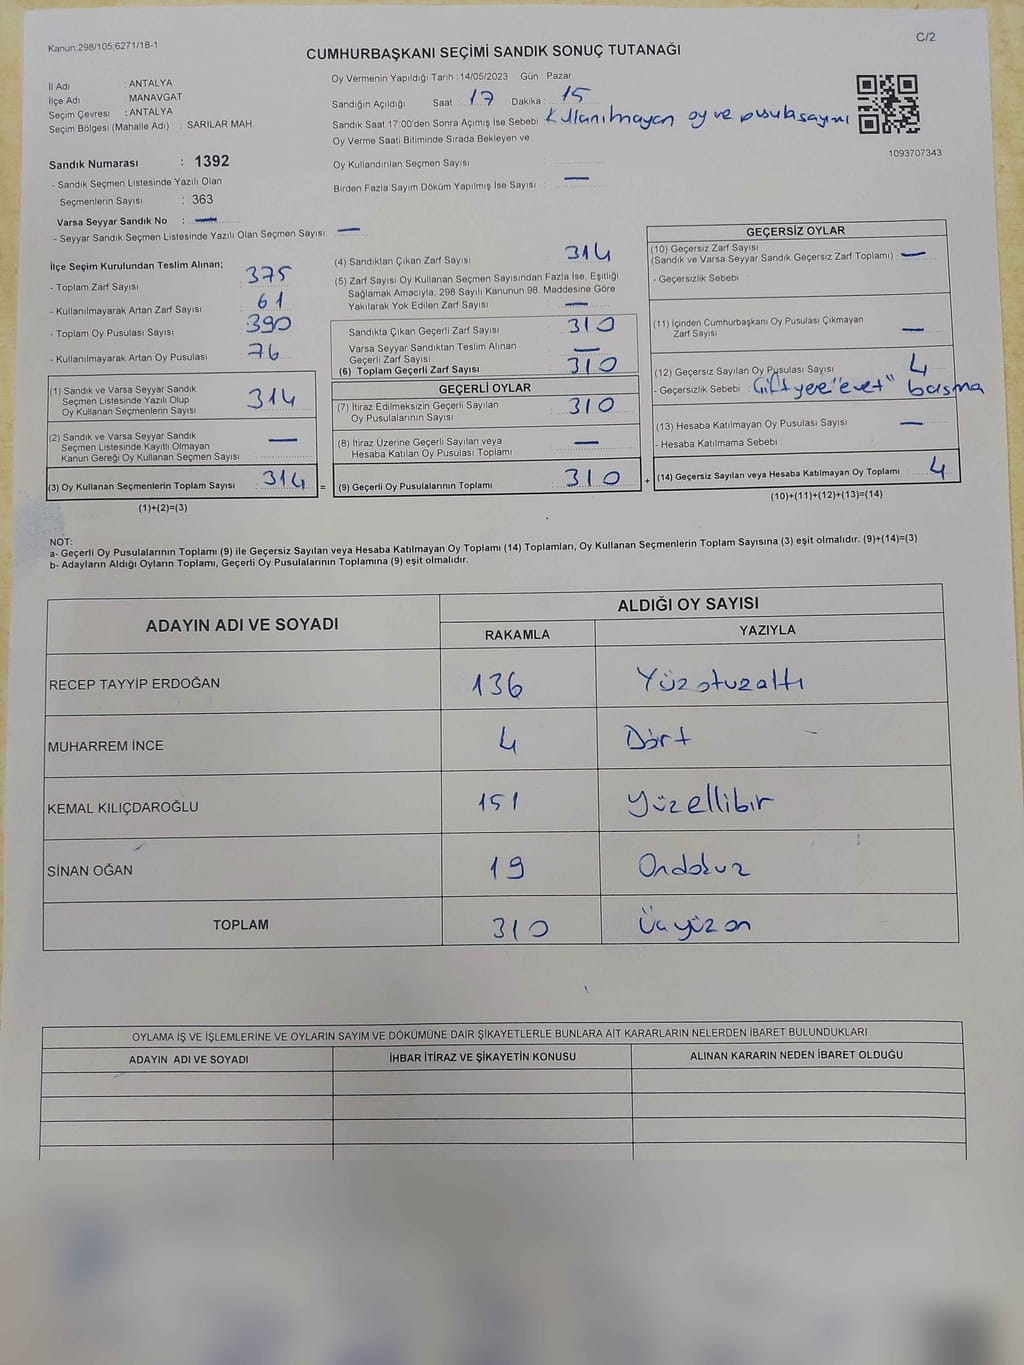 Kanun;298/105;6271/18-1
C/2
CUMHURBAŞKANI SEÇİMİ SANDIK SONUÇ TUTANAĞI
İl Adı : ANTALYA
İlçe Adı : MANAVGAT
Seçim Çevresi : ANTALYA
Seçim Bölgesi (Mahalle Adı) : SARILAR MAH.
Oy Vermenin Yapıldığı Tarih : 14/05/2023 Gün : Pazar
Sandığın Açıldığı Saat : 17 Dakika : 15
Sandık Saat 17:00'den Sonra Açımış İse Sebebi : Kullanılmayan oy ve pusula sayımı
Oy Verme Saati Bitiminde Sırada Bekleyen ve
Oy Kullandırılan Seçmen Sayısı :
Birden Fazla Sayım Döküm Yapılmış İse Sayısı : —
1093707343
Sandık Numarası : 1392
- Sandık Seçmen Listesinde Yazılı Olan
Seçmenlerin Sayısı : 363
Varsa Seyyar Sandık No : —
- Seyyar Sandık Seçmen Listesinde Yazılı Olan Seçmen Sayısı: —
İlçe Seçim Kurulundan Teslim Alınan;
- Toplam Zarf Sayısı : 375
- Kullanılmayarak Artan Zarf Sayısı : 61
- Toplam Oy Pusulası Sayısı : 390
- Kullanılmayarak Artan Oy Pusulası : 76
(1) Sandık ve Varsa Seyyar Sandık
Seçmen Listesinde Yazılı Olup
Oy Kullanan Seçmenlerin Sayısı : 314
(2) Sandık ve Varsa Seyyar Sandık
Seçmen Listesinde Kayıtlı Olmayan
Kanun Gereği Oy Kullanan Seçmen Sayısı : —
(3) Oy Kullanan Seçmenlerin Toplam Sayısı : 314 =
(1)+(2)=(3)
(4) Sandıktan Çıkan Zarf Sayısı : 314
(5) Zarf Sayısı Oy Kullanan Seçmen Sayısından Fazla İse, Eşitliği
Sağlamak Amacıyla, 298 Sayılı Kanunun 98. Maddesine Göre
Yakılarak Yok Edilen Zarf Sayısı : —
Sandıkta Çıkan Geçerli Zarf Sayısı : 310
Varsa Seyyar Sandıktan Teslim Alınan
Geçerli Zarf Sayısı : —
(6) Toplam Geçerli Zarf Sayısı : 310
GEÇERLİ OYLAR
(7) İtiraz Edilmeksizin Geçerli Sayılan
Oy Pusulalarının Sayısı : 310
(8) İtiraz Üzerine Geçerli Sayılan veya
Hesaba Katılan Oy Pusulası Toplamı : —
(9) Geçerli Oy Pusulalarının Toplamı : 310 +
GEÇERSİZ OYLAR
(10) Geçersiz Zarf Sayısı
(Sandık ve Varsa Seyyar Sandık Geçersiz Zarf Toplamı) : —
- Geçersizlik Sebebi :
(11) İçinden Cumhurbaşkanı Oy Pusulası Çıkmayan
Zarf Sayısı : —
(12) Geçersiz Sayılan Oy Pusulası Sayısı : 4
- Geçersizlik Sebebi : Çift yere "evet" basma
(13) Hesaba Katılmayan Oy Pusulası Sayısı : —
- Hesaba Katılmama Sebebi :
(14) Geçersiz Sayılan veya Hesaba Katılmayan Oy Toplamı : 4
(10)+(11)+(12)+(13)=(14)
NOT:
a- Geçerli Oy Pusulalarının Toplamı (9) ile Geçersiz Sayılan veya Hesaba Katılmayan Oy Toplamı (14) Toplamları, Oy Kullanan Seçmenlerin Toplam Sayısına (3) eşit olmalıdır. (9)+(14)=(3)
b- Adayların Aldığı Oyların Toplamı, Geçerli Oy Pusulalarının Toplamına (9) eşit olmalıdır.
ADAYIN ADI VE SOYADI
ALDIĞI OY SAYISI
RAKAMLA YAZIYLA
RECEP TAYYİP ERDOĞAN 136 Yüzotuzaltı
MUHARREM İNCE 4 Dört
KEMAL KILIÇDAROĞLU 151 Yüzellibir
SİNAN OĞAN 19 Ondokuz
TOPLAM 310 Üçyüzon
OYLAMA İŞ VE İŞLEMLERİNE VE OYLARIN SAYIM VE DÖKÜMÜNE DAİR ŞİKAYETLERLE BUNLARA AİT KARARLARIN NELERDEN İBARET BULUNDUKLARI
ADAYIN ADI VE SOYADI İHBAR İTİRAZ VE ŞİKAYETİN KONUSU ALINAN KARARIN NEDEN İBARET OLDUĞU